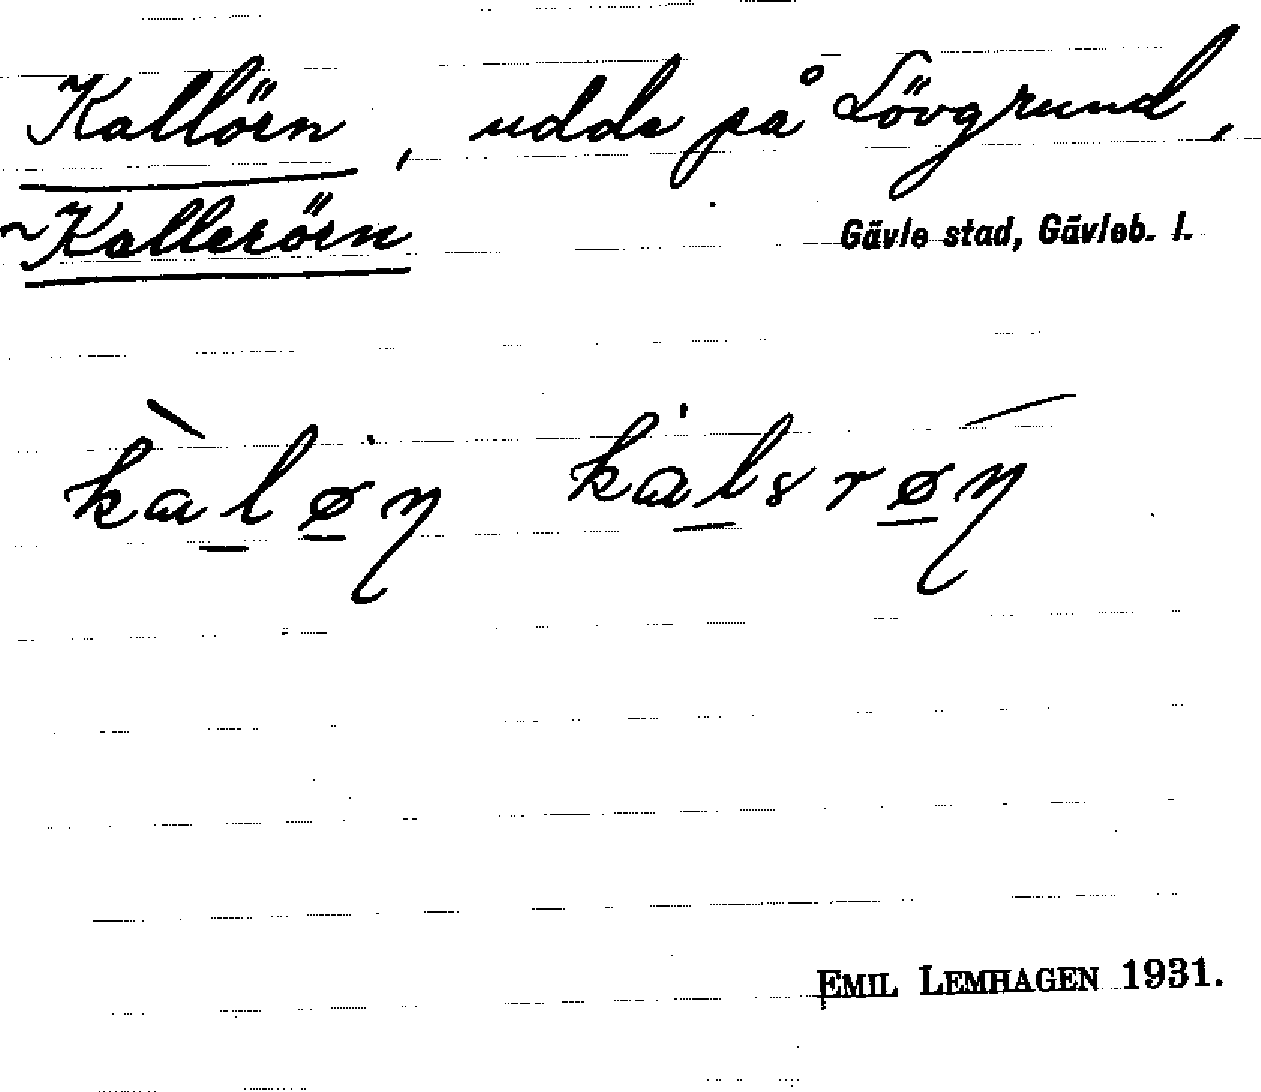 Kallörn, udde på Lövgrund,
~Kallerörn
Gävle stad, Gävleb. l.
kaløɳ kalsrøɳ
EMIL LEMHAGEN 1931.